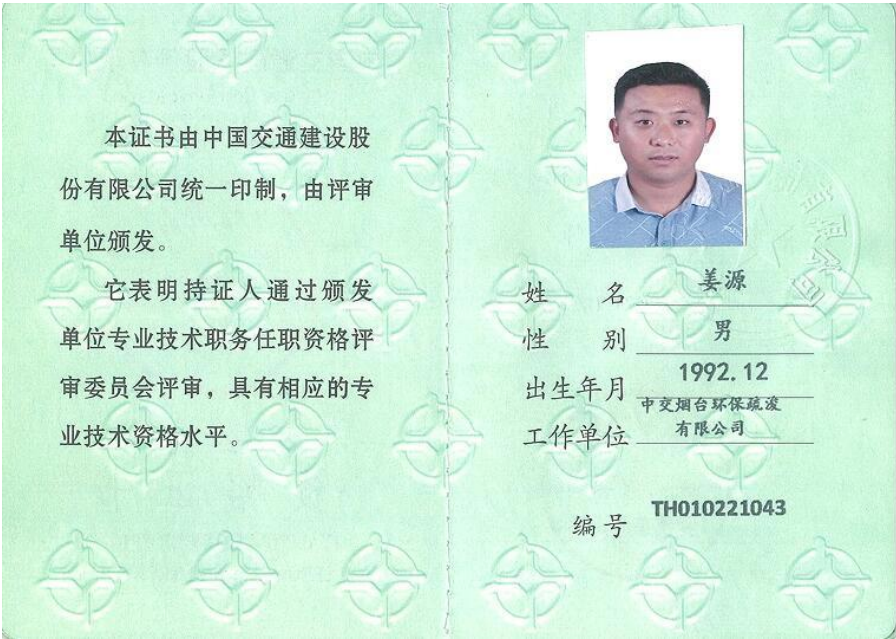 本证书由中国交通建设股
份有限公司统一印制，由评审
单位颁发。
它表明持证人通过颁发
单位专业技术职务任职资格评
审委员会评审，具有相应的专
业技术资格水平。
姓 名 姜源
性 别 男
出生年月 1992.12
工作单位 中交烟台环保疏浚
有限公司
编号 TH010221043